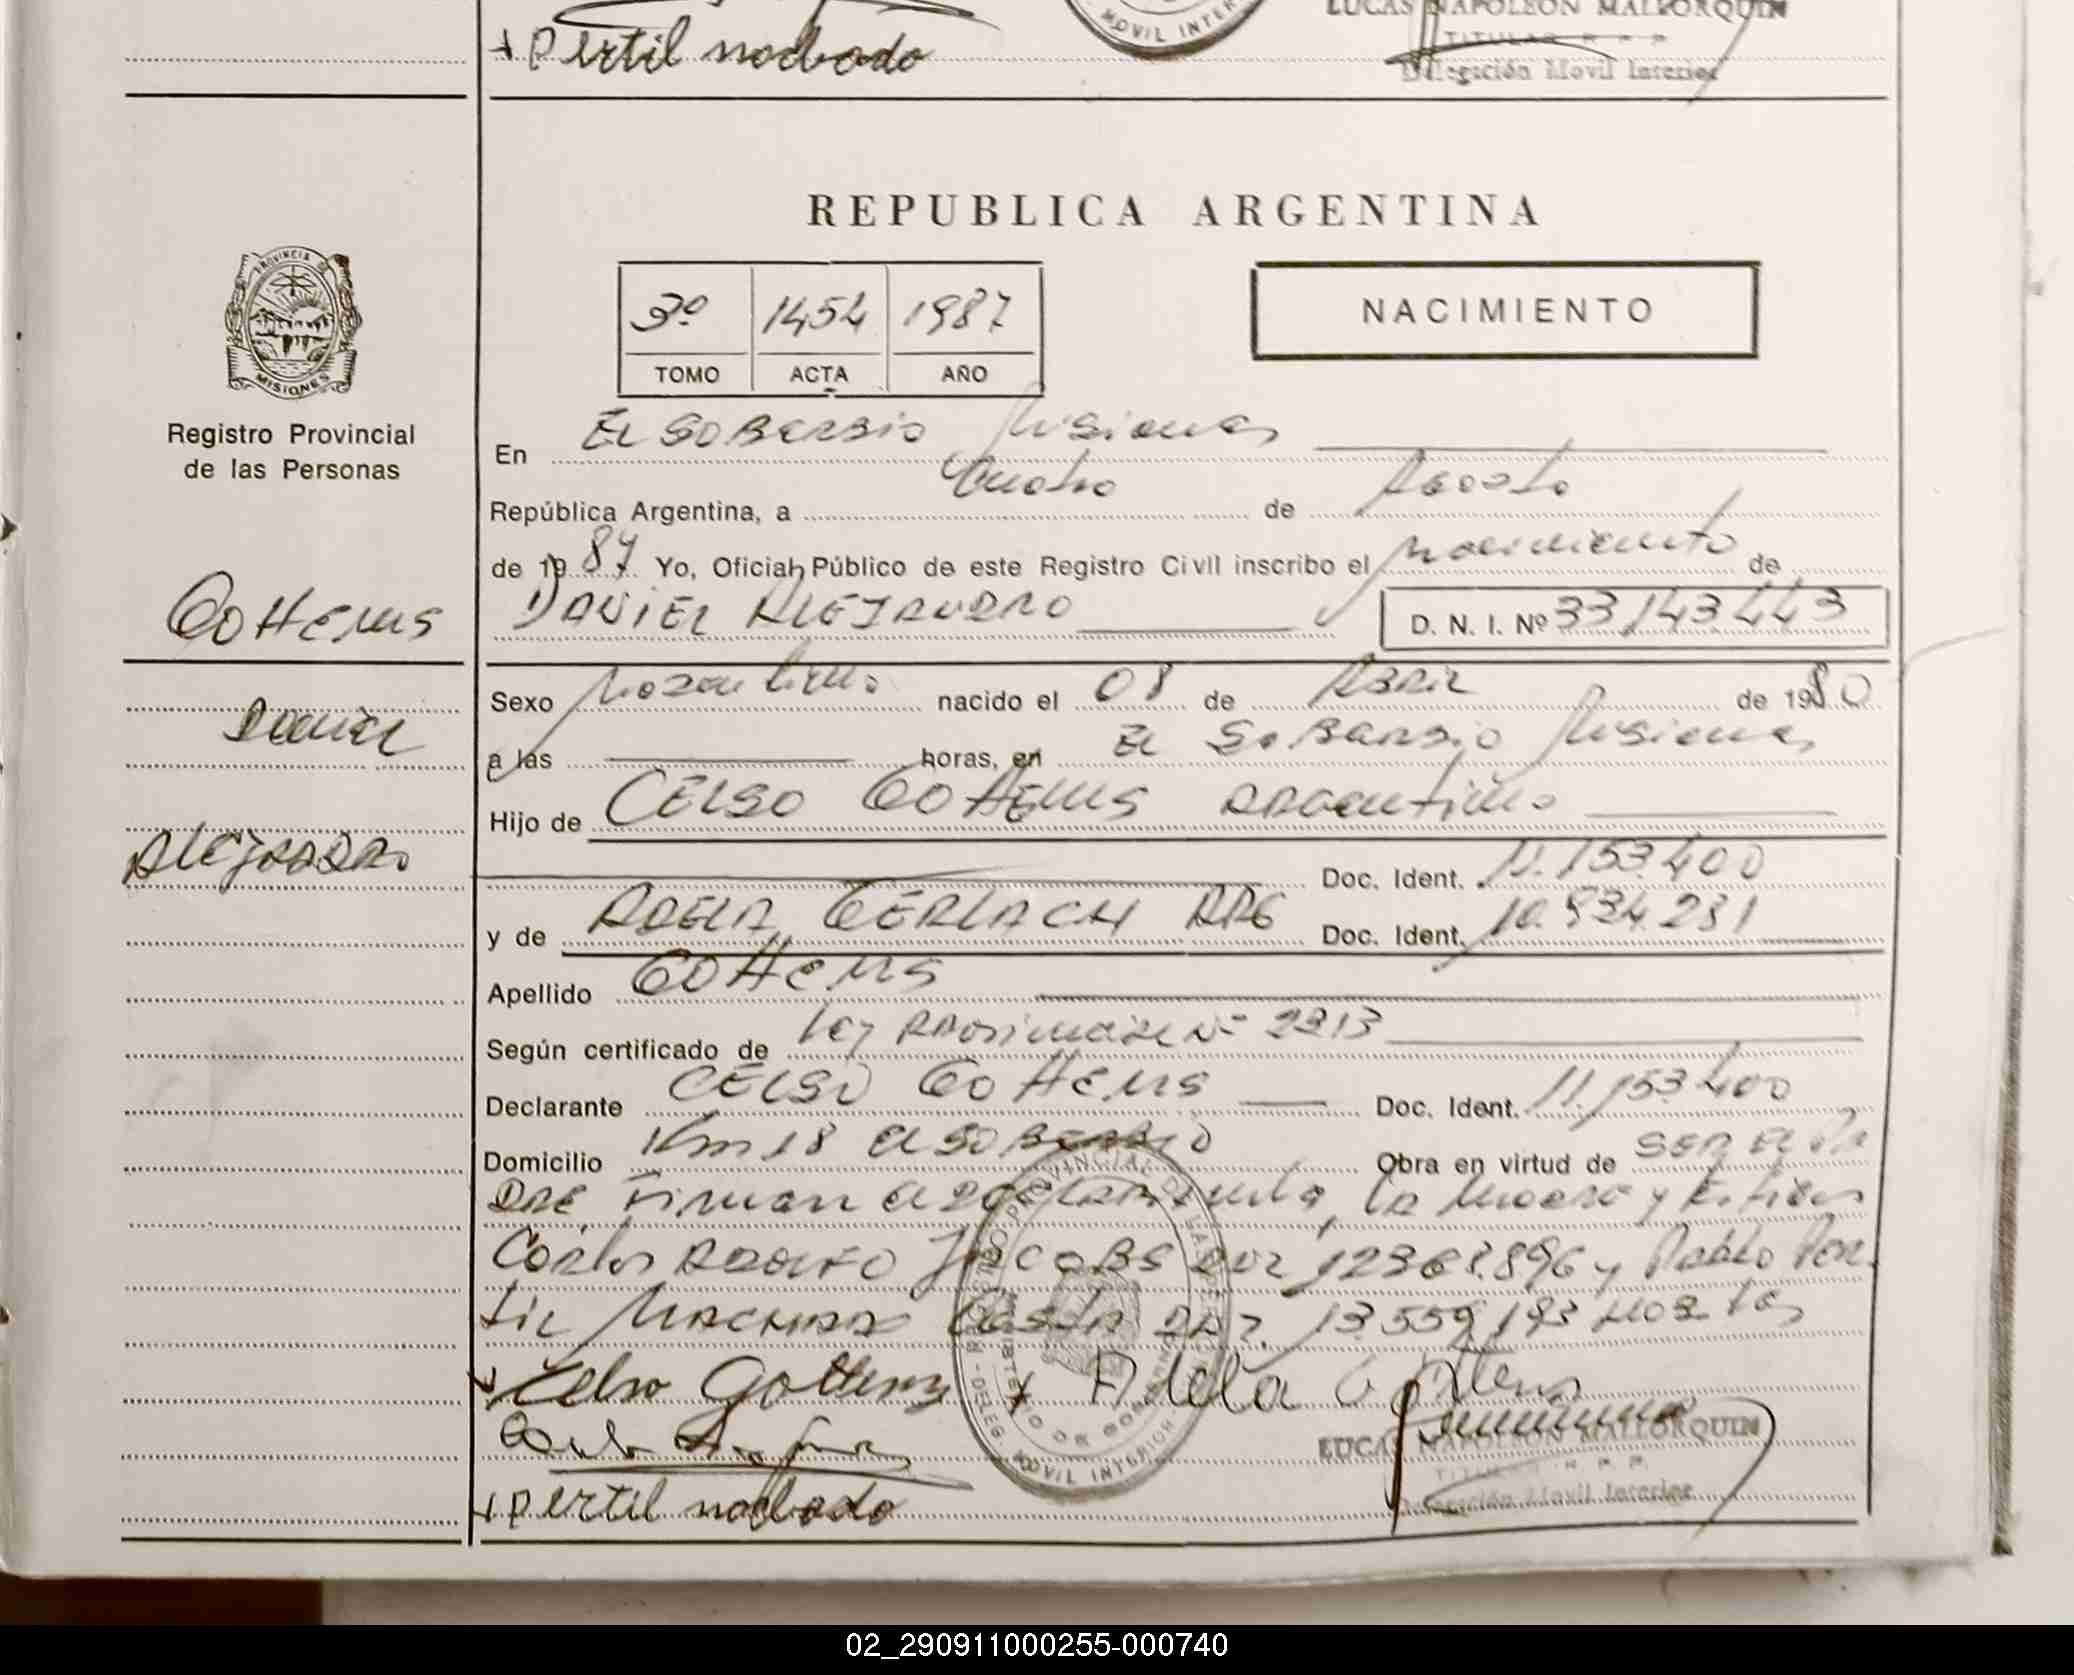 LUCAS NAPOLEON MALLORQUIN
MOVIL INTER
TITULAR R. P. P.
Delegación Movil Interior
+ pertil mochado
REPUBLICA ARGENTINA
PROVINCIA DE
MISIONES
Registro Provincial
de las Personas
3º 1454 1987
TOMO ACTA AÑO
NACIMIENTO
En El Soberbio Misiones
República Argentina, a Cuatro de Agosto
de 1987 Yo, Oficial Público de este Registro Civil inscribo el nacimiento de
DANIEL ALEJANDRO D. N. I. Nº 33.143.443
Gottems
Daniel
Alejandro
Sexo Masculino nacido el 08 de Abril de 1980
a las horas, en El Soberbio Misiones
Hijo de CELSO Gottems Argentino
Doc. Ident. 11.153.400
y de ADELA GERLACH ARG Doc. Ident. 10.934.231
Apellido Gottems
Según certificado de Ley Provincial Nº 2313
Declarante CELSO Gottems Doc. Ident. 11.153.400
Domicilio Km 18 El Soberbio Obra en virtud de ser el Pa
dre, Firman el declarante, la madre y testigos
Carlos Adolfo Jacobs DNI 12363.896 y Pablo Per
til Machado Costa DNI. 13.559.193
Celso Gottems x Adela G Ottens
+ pertil mochado
REGISTRO PROVINCIAL DE LAS PERSONAS - DELEG. MOVIL INTERIOR
MINISTERIO DE GOBIERNO
LUCAS NAPOLEON MALLORQUIN
TITULAR R. P. P.
Delegación Movil Interior
02_290911000255-000740